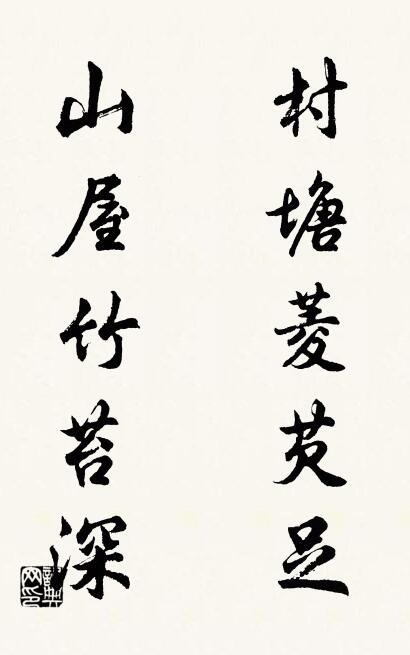 村塘菱芡足
山屋竹苔深